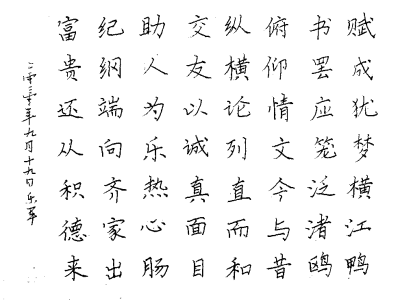 赋成犹梦横江鸭
书罢应笼泛渚鸥
俯仰情文今与昔
纵横论列直而和
交友以诚真面目
助人为乐热心肠
纪纲端向齐家出
富贵还从积德来
二零二零年九月十九日乐军